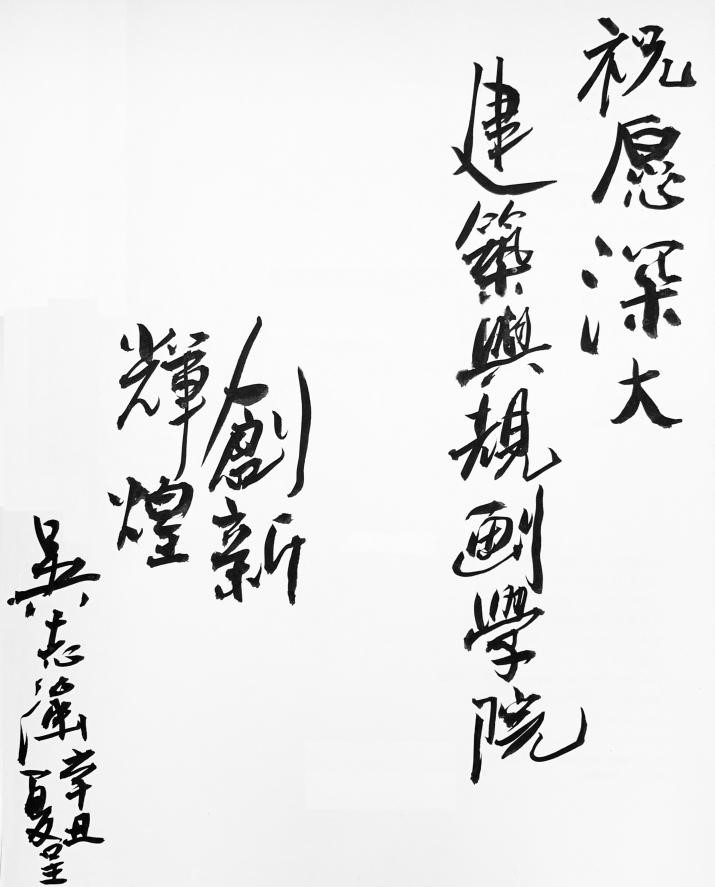 祝愿深大
建築與規劃學院
創新
輝煌
吳志強
辛丑
夏呈